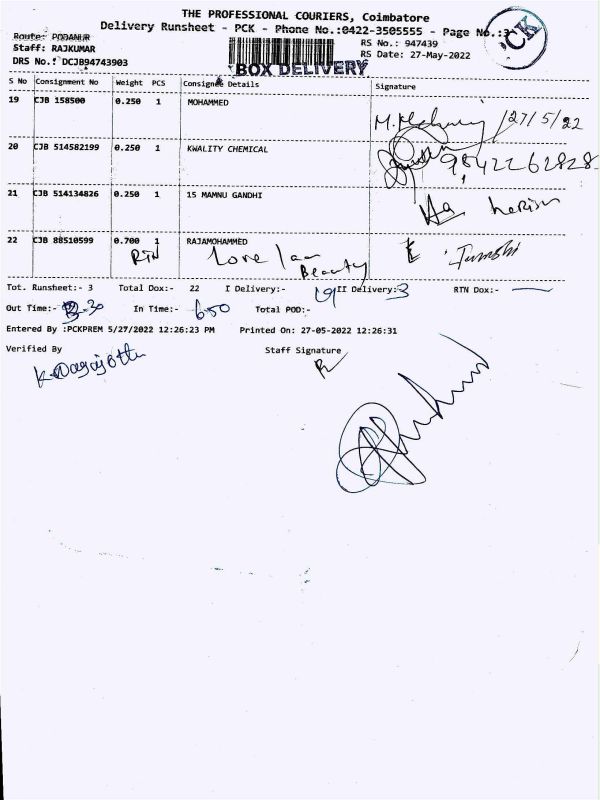 THE PROFESSIONAL COURIERS, Coimbatore
Delivery Runsheet - PCK - Phone No.:0422-3505555 - Page No.:3
PCK
Route: PODANUR
RS No.: 947439
Staff: RAJKUMAR
RS Date: 27-May-2022
DRS No.: DCJB94743903
BOX DELIVERY
S No Consignment No Weight PCS Consignee Details Signature
19 CJB 158500 0.250 1 MOHAMMED
27/5/22
20 CJB 514582199 0.250 1 KWALITY CHEMICAL
9842262828
21 CJB 514134826 0.250 1 15 MAMNU GANDHI
22 CJB 88510599 0.700 1 RAJAMOHAMMED
RTN Love
Beauty
Tot. Runsheet:- 3 Total Dox:- 22 I Delivery:- 19 II Delivery:- 3 RTN Dox:-
Out Time:- In Time:- 6.50 Total POD:-
Entered By :PCKPREM 5/27/2022 12:26:23 PM Printed On: 27-05-2022 12:26:31
Verified By Staff Signature